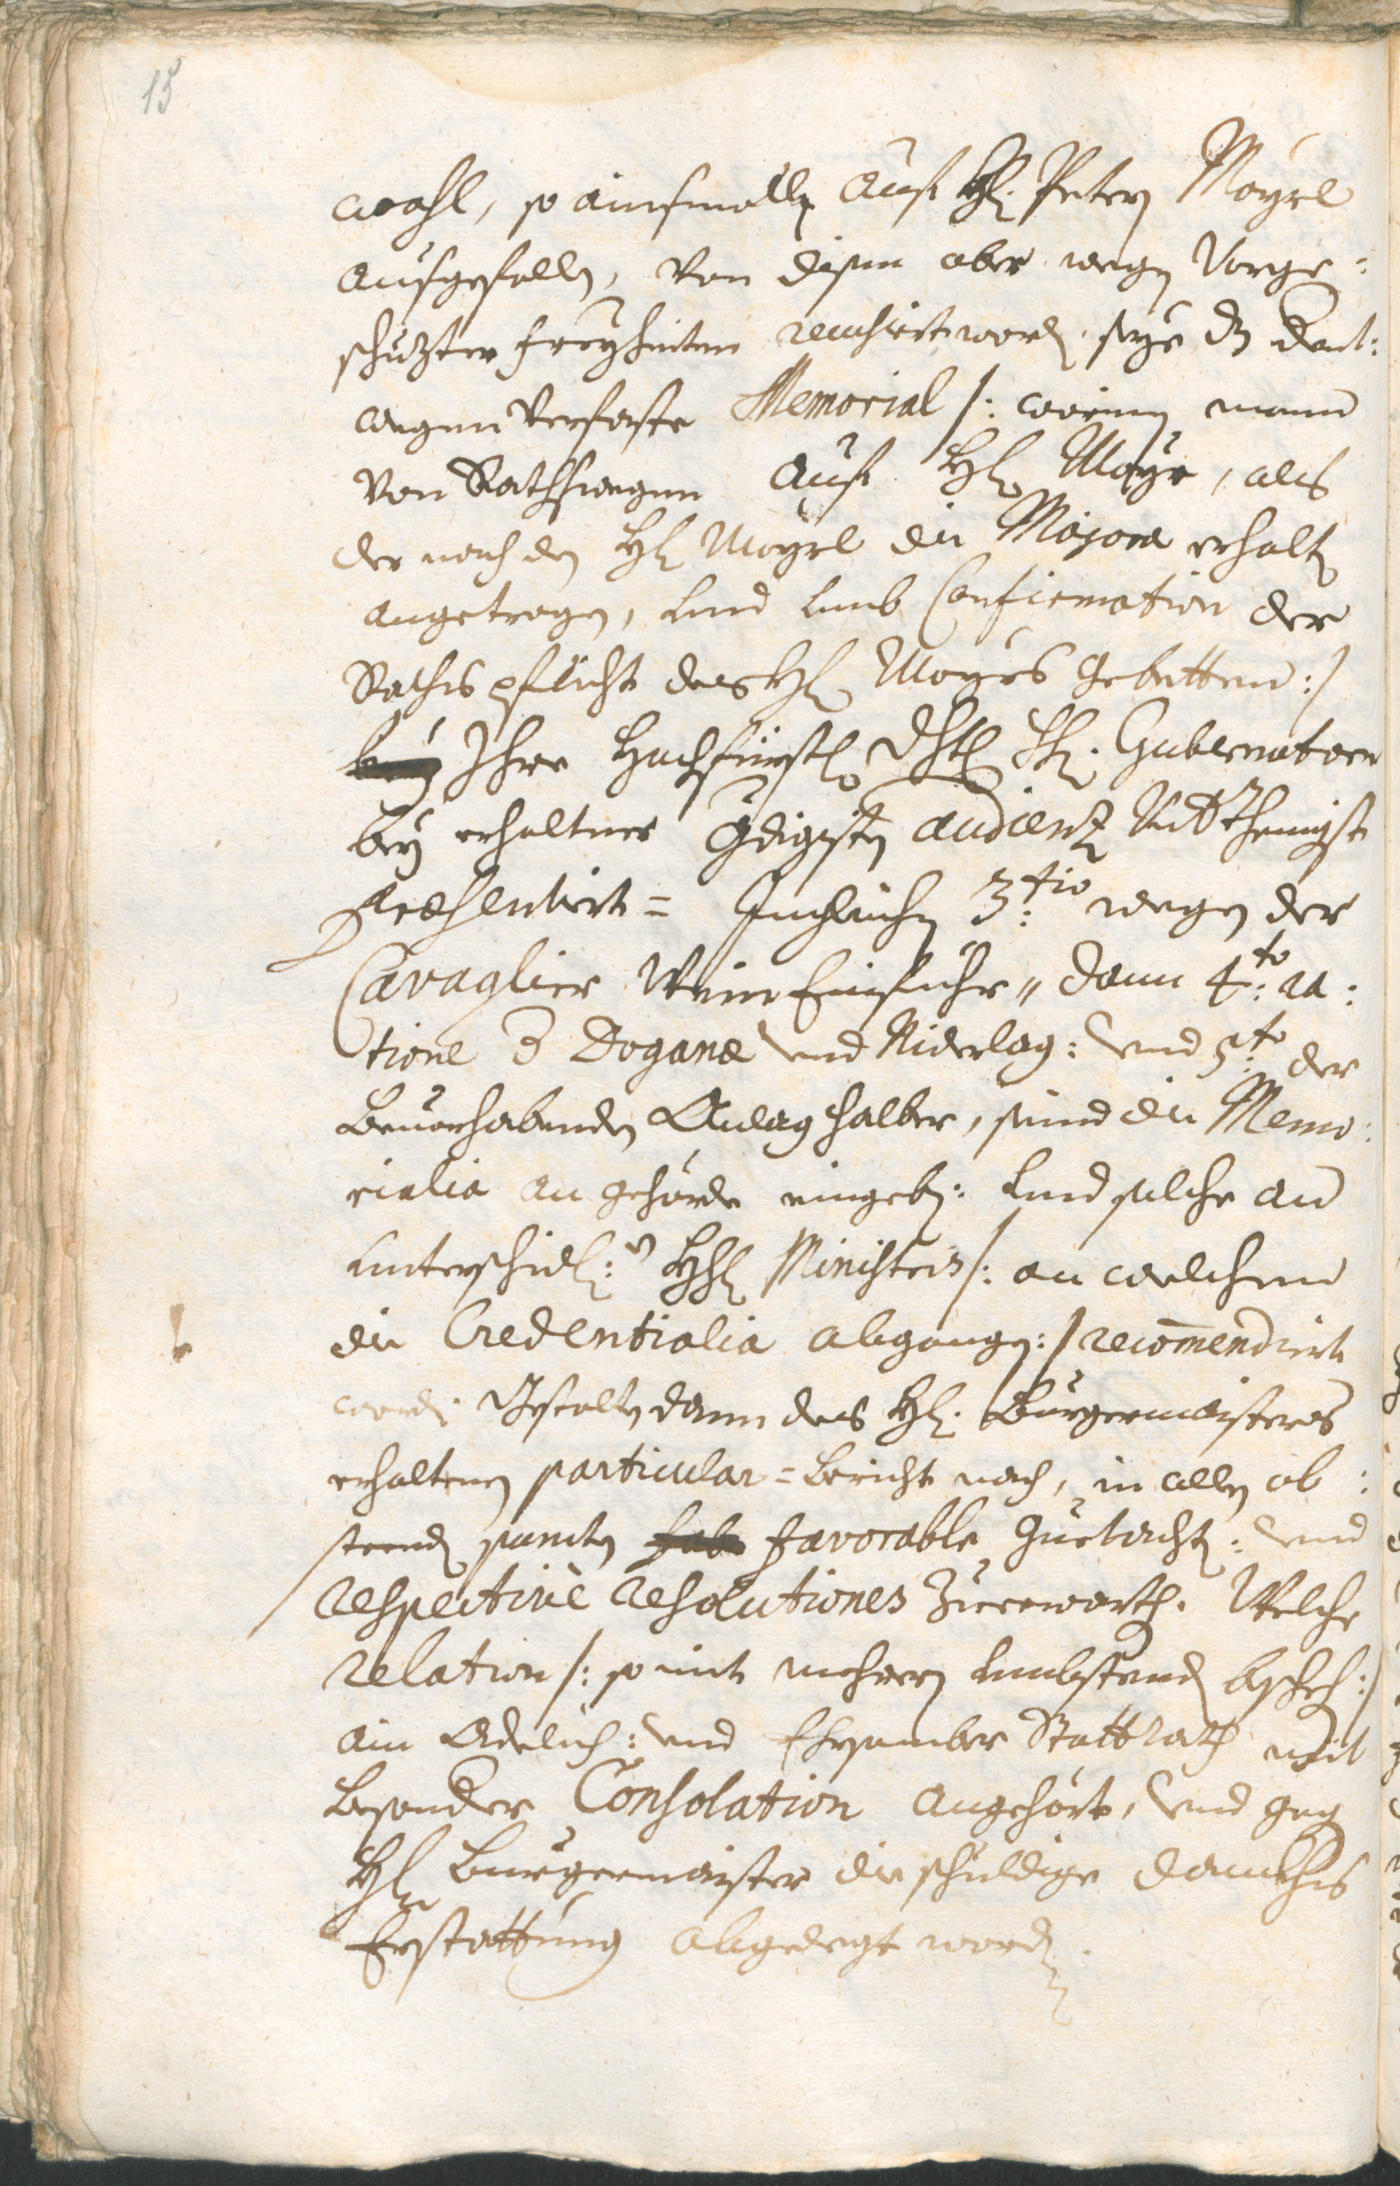 15
wahl, so ainsmalls auf H: Peter Mayrl
ausgefallen, von disem aber wegen Vorge:
schuzter freyheiten recusirt worden, seye dz
wegen verfaste Memorial /: worinen mann
von Rathswegen auf H: Mayr, als
der nach den H: Mayrl die Majora erhalten
angetragen, und umb Confirmation der
Raths pflicht des H: Mayrs gebetten :/
Ihre Hochfürstl: Dhtl: H: Gubernatorn
bey erhaltner gdigisten audienz Underthenigst
præsentirt = Ingleichen 3:tio wegen der
Cavaglier Wein Einfuhr, dann 4:to ra:
tione Dogana und Niderlag: und 5:to der
Bevorhabenden Anlag halber, seind die Memo:
rialia an gehörde eingeben: und solche an
unterschidl: HH: Ministris /: an welchene
die Credentialia abgangen :/ recomendirt
worden. Gestalten dann des H: Burgermaisters
erhaltenen particular = bericht nach, in allen ob:
steenden puncten favorable guetacht: und
respectivè resolutiones zuerwarthen. Welche
relation /: so mit mehrern umbstenden beschechen :/
ain Adelich: und Ehrsamber Stattrath mit
besonder Consolation angehört, und gegen
H: Burgermaister die schuldige danckhs
Erstattung abgelegt worden.